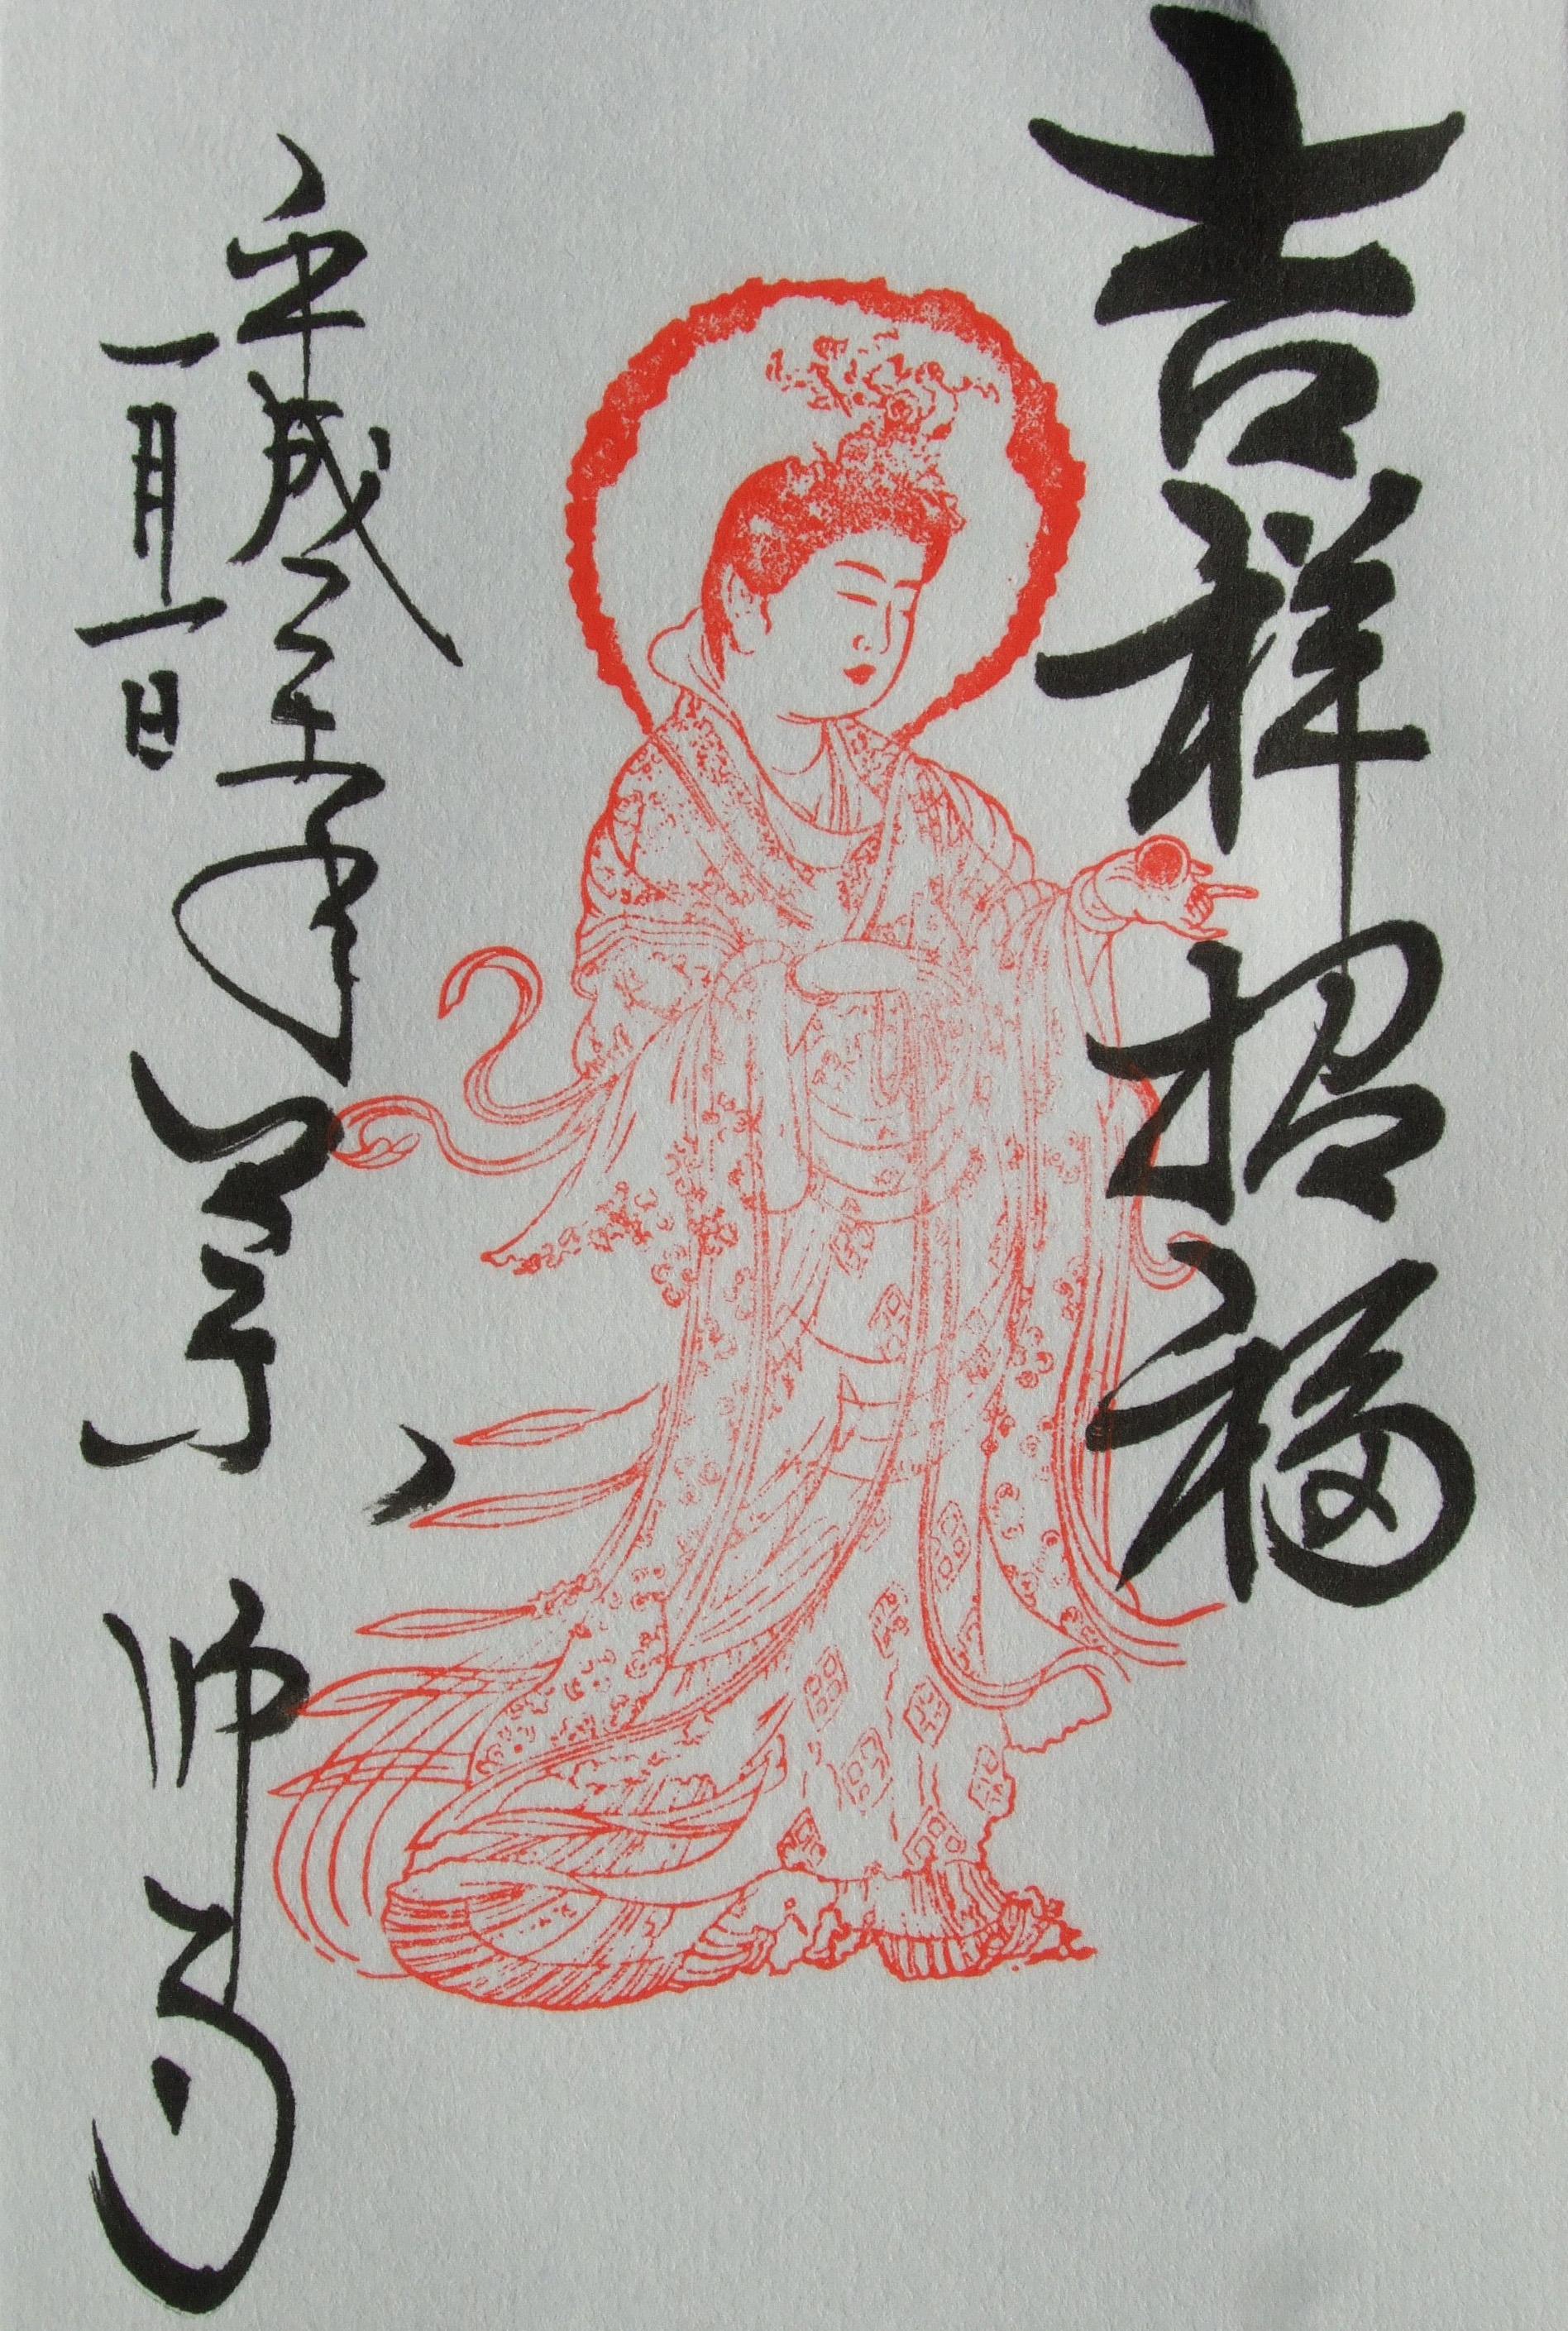 吉祥招福
平成三十年
一月一日
薬師寺